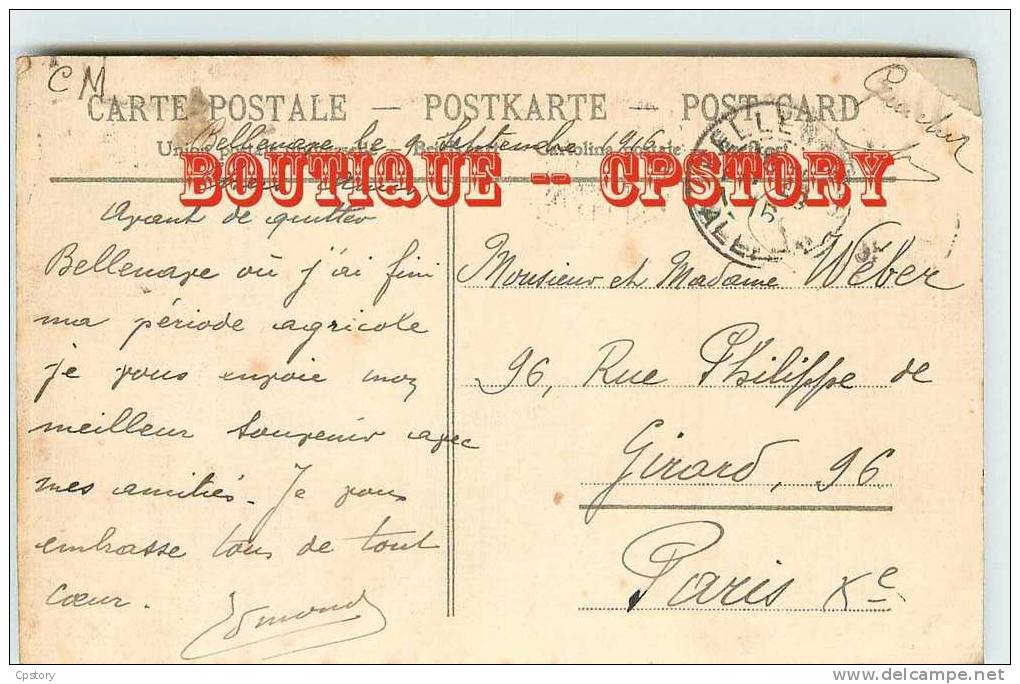 CM
CARTE POSTALE — POSTKARTE — POST CARD
Bellenave le 9 Septembre 1916
BOUTIQUE -- CPSTORY
Avant de quitter
Bellenave où j'ai fini
ma période agricole
je vous envoie mon
meilleur souvenir avec
mes amitiés. Je vous
embrasse tous de tout
cœur.
Edmond
Monsieur et Madame Weber
96, Rue Philippe de
Girard, 96
Paris Xe
Cpstory
www.delcampe.net